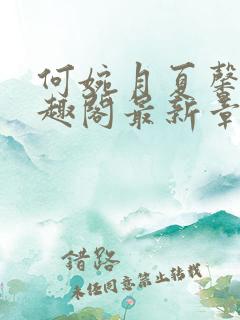 何婉月夏馨
趣阁最新章
錯路
未经同意禁止转载